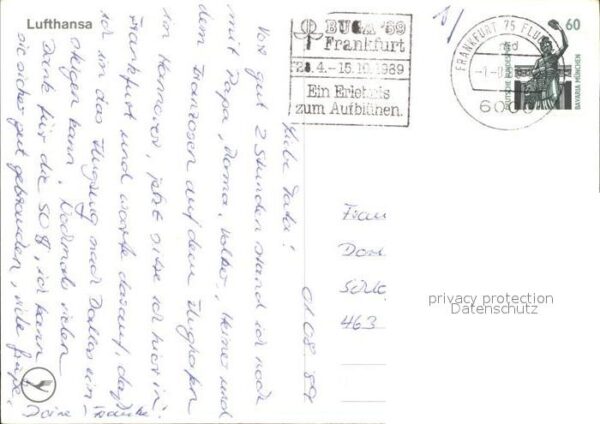 Lufthansa
BUGA '89
Frankfurt
28.4.-15.10.1989
Ein Erlebnis
zum Aufblühen.
FRANKFURT 75 FLUGH
60
DEUTSCHE BUNDESPOST
BAVARIA MÜNCHEN
6000
01.08.89
Liebe
Vor gut 2 Stunden stand ich noch
mit Papa, Mama, Volker, Heiner und
dem Franzosen auf dem Flughafen
in Hannover, jetzt sitze ich hier in
Frankfurt und warte darauf, daß
ich in das Flugzeug nach Dallas ein-
steigen kann. Nochmals vielen
Dank für die 50 $, ich kann
sie sicher gut gebrauchen, viele Grüße,
Deine
Frau
463
privacy protection
Datenschutz